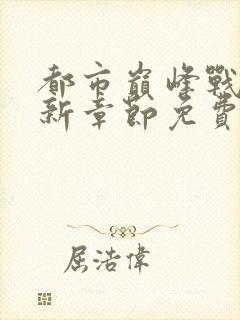 都市巔峰戰
新章節免費
屈浩偉